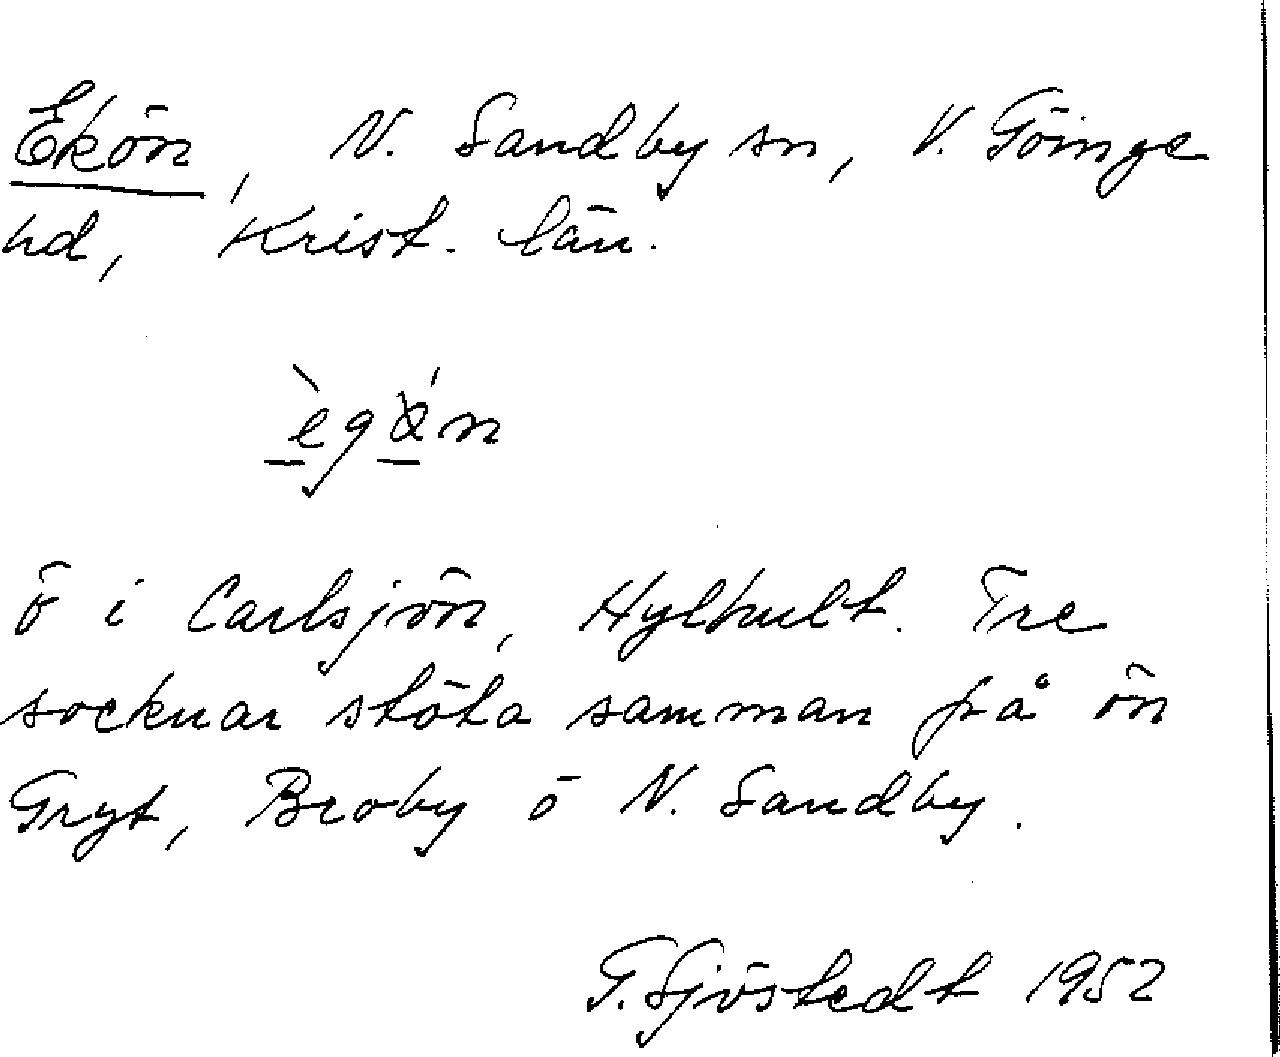 Ekön, N. Sandby sn, V. Göinge
hd, Krist. län.
ö i Carlsjön, Hylhult. Tre
socknar stöta samman på ön
Gryt, Broby o N. Sandby.
G. Sjöstedt 1952